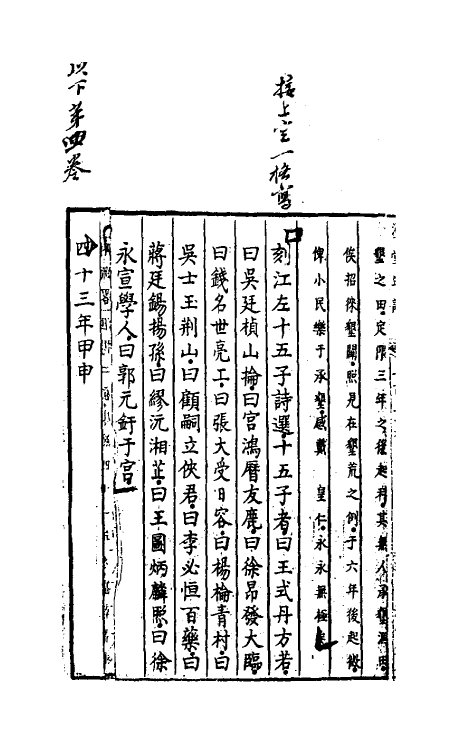 接上空一格寫
以下第四卷
墾之田定限三年之後起科其無人承墾
俟招徠墾闢照見在墾荒之例于六年後起
俾小民樂于承墾感戴 皇仁永永無極
刻江左十五子詩選十五子者曰王式丹方若
曰吳廷楨山掄曰宮鴻曆友鹿曰徐昂發大臨
曰錢名世亮工曰張大受日容曰楊棆青村曰
吳士玉荆山曰顧嗣立俠君曰李必恒百藥曰
蔣廷錫揚孫曰繆沅湘芷曰王圖炳麟照曰徐
永宣學人曰郭元釪于宮
四十三年甲申